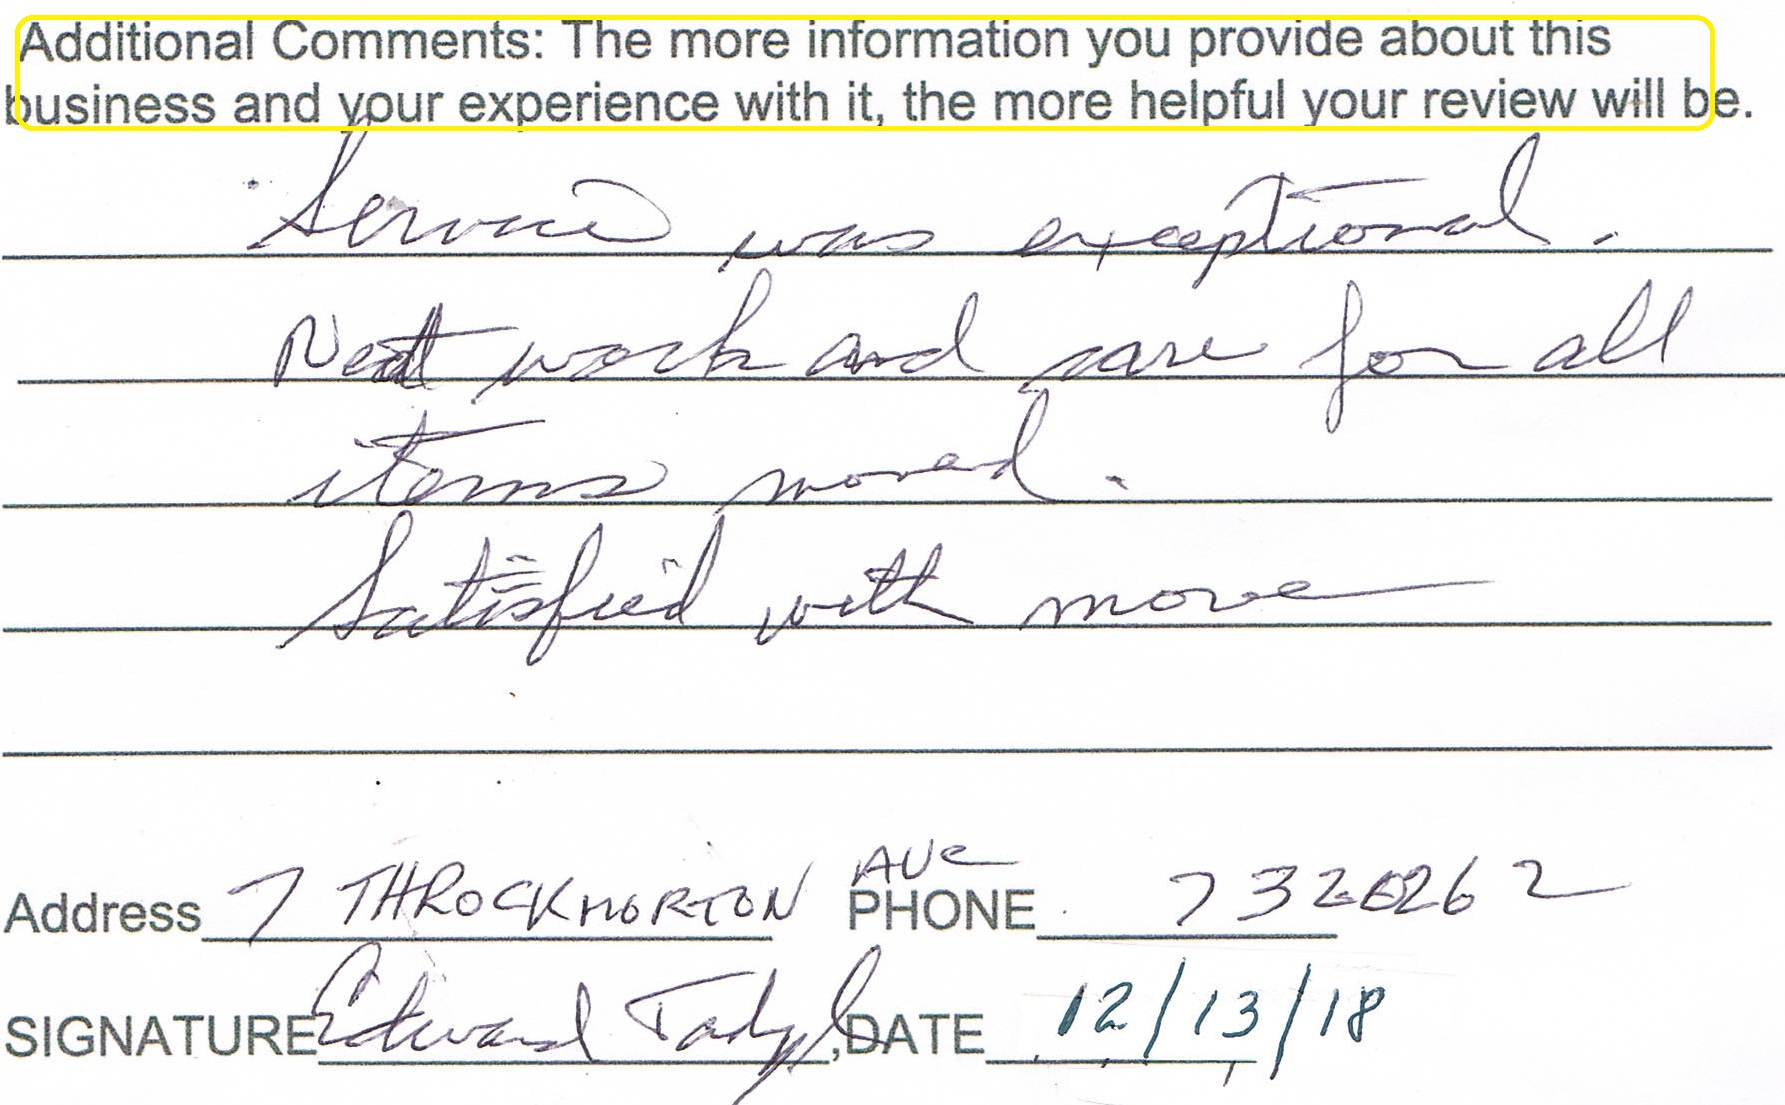 Additional Comments: The more information you provide about this
business and your experience with it, the more helpful your review will be.
Service was exceptional.
Neat work and care for all
items moved.
Satisfied with move
Address 7 THROCKMORTON AVE PHONE 7320262
SIGNATURE Edward DATE 12/13/18